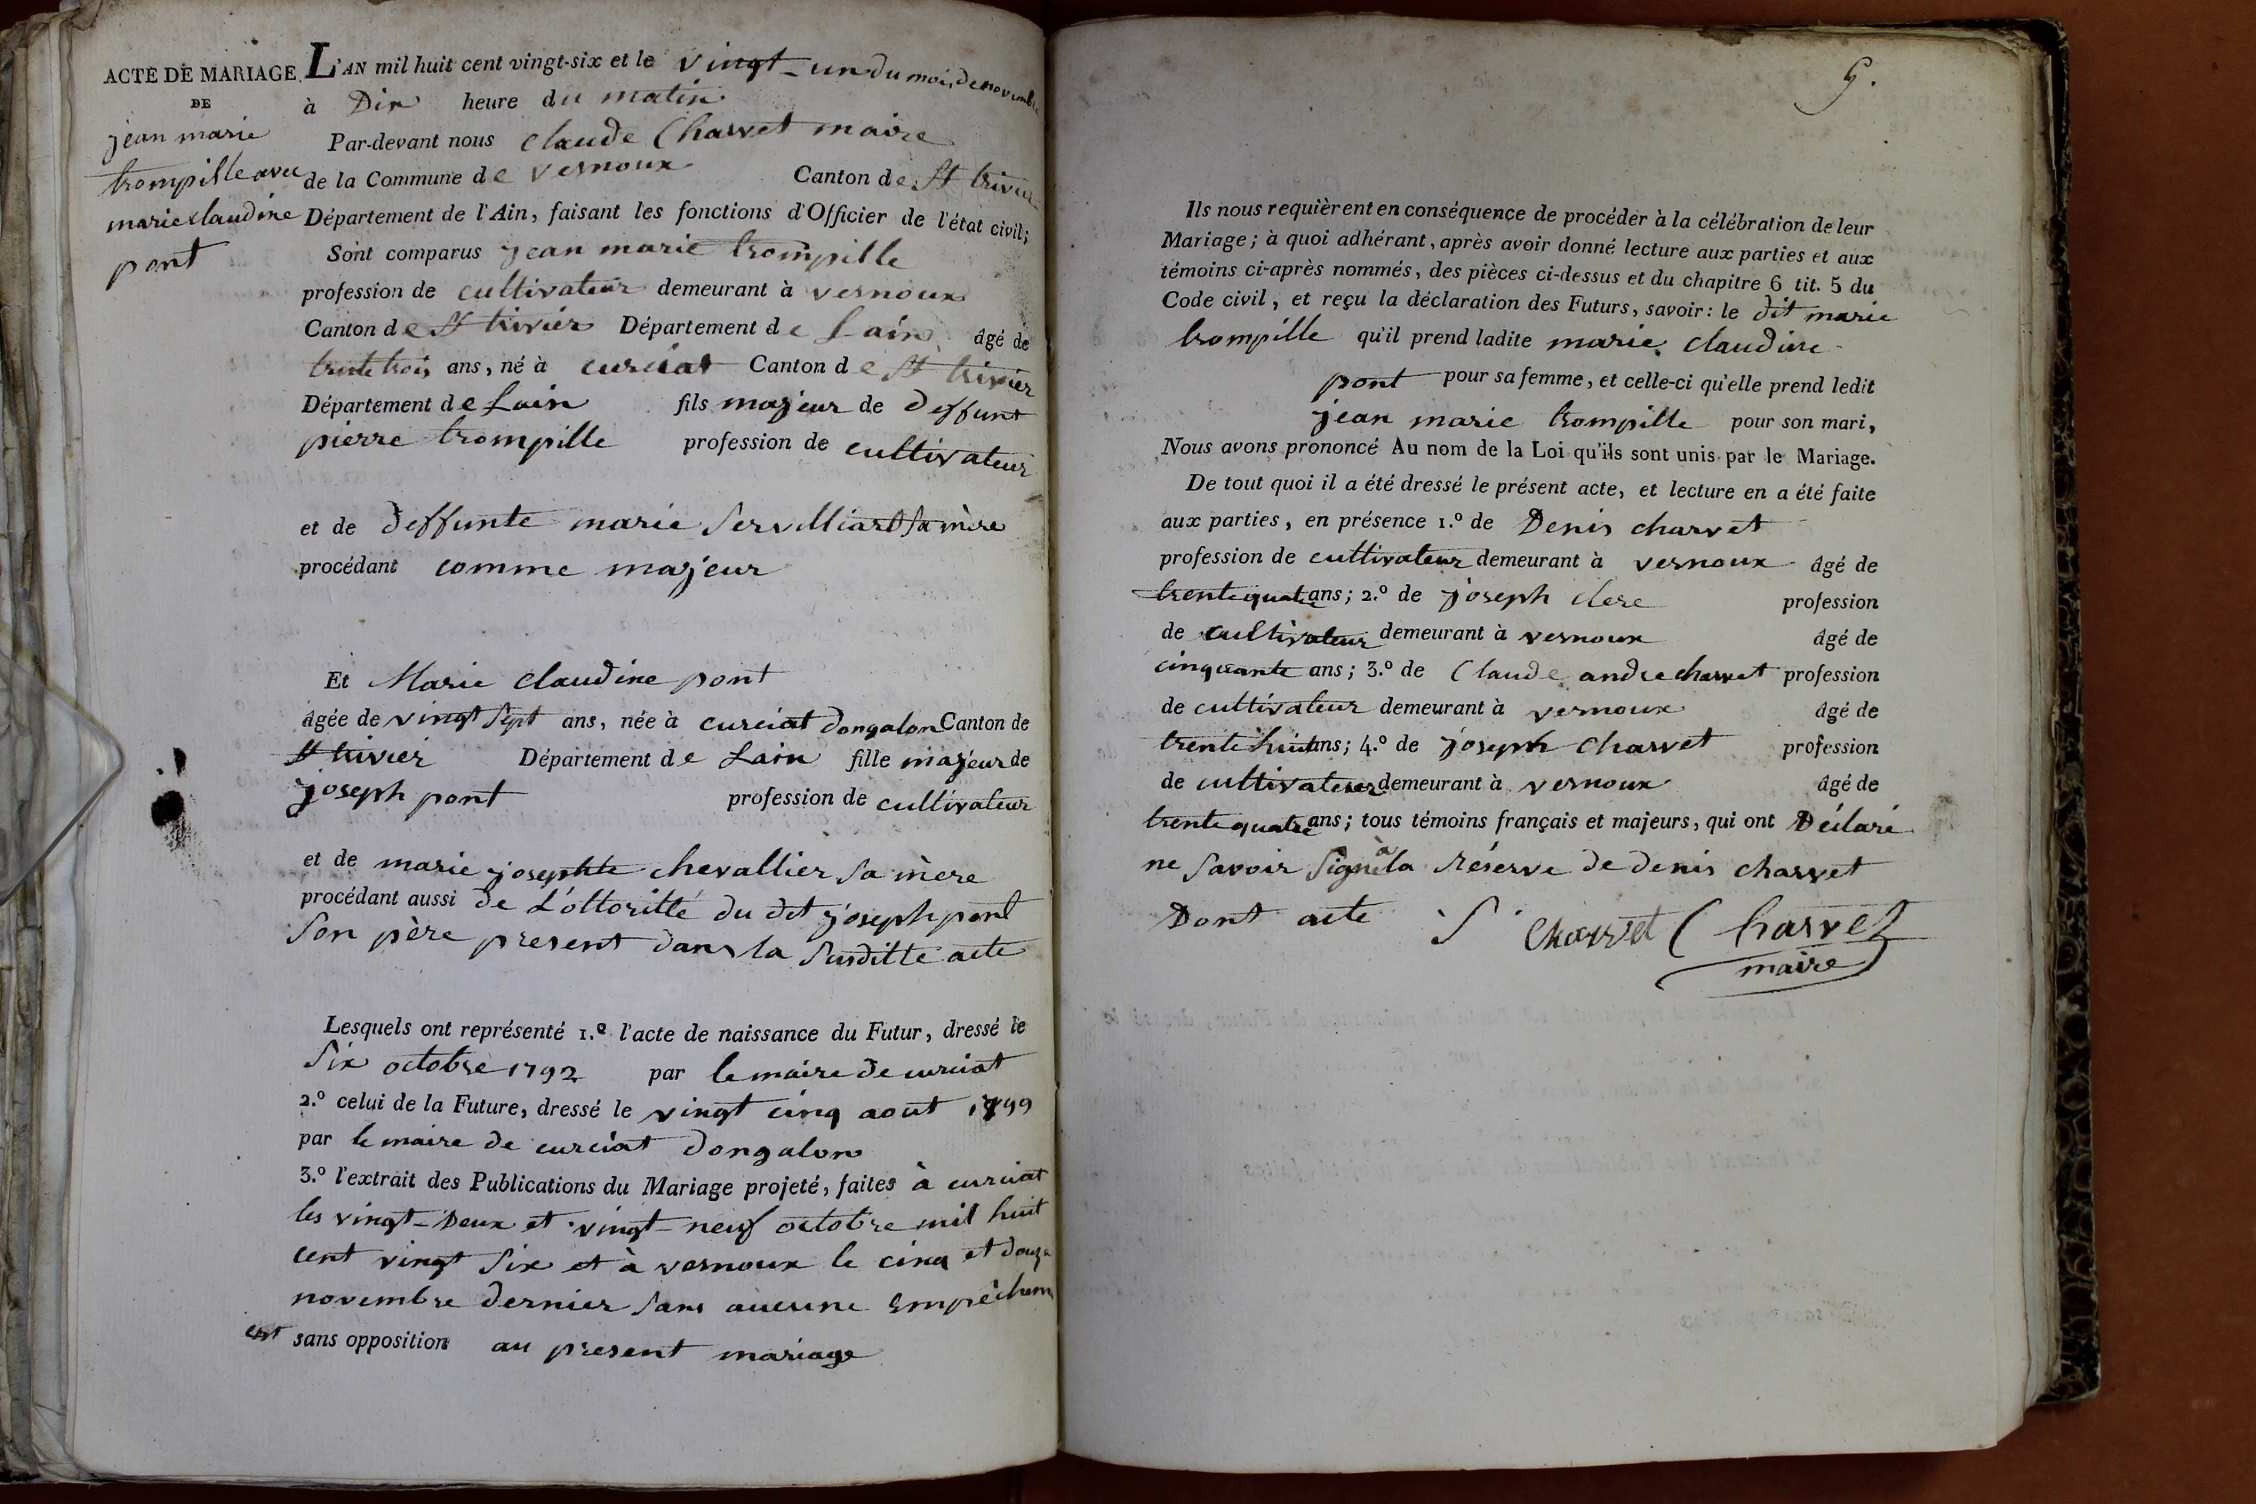 ACTE DE MARIAGE
DE
jean marie
trompille avec
marie claudine
pont
L'AN mil huit cent vingt-six et le vingt-un du mois de novembre
à Dix heure du matin
Par-devant nous claude Charvet maire
de la Commune de vernoux Canton de St trivier
Département de l'Ain, faisant les fonctions d'Officier de l'état civil;
Sont comparus jean marie trompille
profession de cultivateur demeurant à vernoux
Canton de St trivier Département de Lain âgé de
trente trois ans, né à curciat Canton de St trivier
Département de Lain fils majeur de deffunt
pierre trompille profession de cultivateur
et de deffunte marie servilliart sa mère
procédant comme majeur
Et Marie claudine pont
âgée de vingt sept ans, née à curciat dongalon Canton de
St trivier Département de Lain fille majeur de
joseph pont profession de cultivateur
et de marie josephte chevallier sa mère
procédant aussi de L'ottoritté du dit joseph pont
son père present dans la susditte acte
Lesquels ont représenté 1.º l'acte de naissance du Futur, dressé le
six octobre 1792 par le maire de curciat
2.º celui de la Future, dressé le vingt cinq aout 1799
par le maire de curciat dongalon
3.º l'extrait des Publications du Mariage projeté, faites à curciat
les vingt-Deux et vingt-neuf octobre mil huit
cent vingt six et à vernoux le cinq et douze
novembre dernier sans aucune empêchem
ent sans opposition au present mariage
5.
Ils nous requièrent en conséquence de procéder à la célébration de leur
Mariage; à quoi adhérant, après avoir donné lecture aux parties et aux
témoins ci-après nommés, des pièces ci-dessus et du chapitre 6 tit. 5 du
Code civil, et reçu la déclaration des Futurs, savoir: le dit marie
trompille qu'il prend ladite marie claudine
pont pour sa femme, et celle-ci qu'elle prend ledit
jean marie trompille pour son mari,
Nous avons prononcé Au nom de la Loi qu'ils sont unis par le Mariage.
De tout quoi il a été dressé le présent acte, et lecture en a été faite
aux parties, en présence 1.º de Denis charvet
profession de cultivateur demeurant à vernoux âgé de
trente quatre ans; 2.º de joseph clere profession
de cultivateur demeurant à vernoux âgé de
cinquante ans; 3.º de Claude andre charvet profession
de cultivateur demeurant à vernoux âgé de
trente huit ans; 4.º de joseph charvet profession
de cultivateur demeurant à vernoux âgé de
trente quatre ans; tous témoins français et majeurs, qui ont Déclaré
ne savoir signé à la réserve de denis charvet
Dont acte charvet Charvet
maire